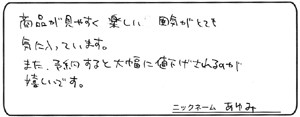 商品が見やすく楽しい 囲気がとても
気に入っています。
また、予約すると大幅に値下げされるのが
嬉しいです。
ニックネーム あゆみ